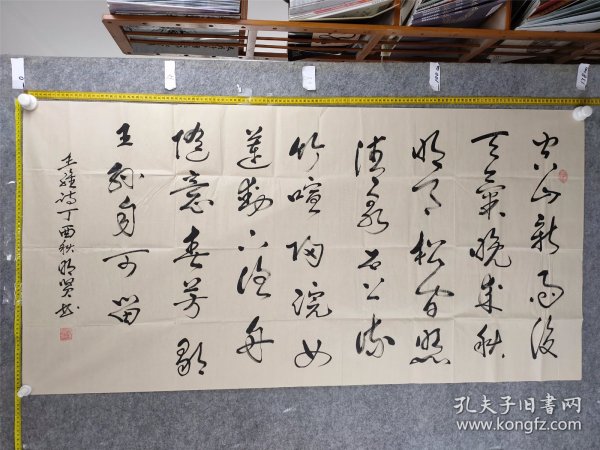 空山新雨後
天氣晚来秋
明月松間照
清泉石上流
竹喧歸浣女
蓮動下漁舟
随意春芳歇
王孫自可留
王維詩丁酉秋明賢书
孔夫子旧书网
www.kongfz.com